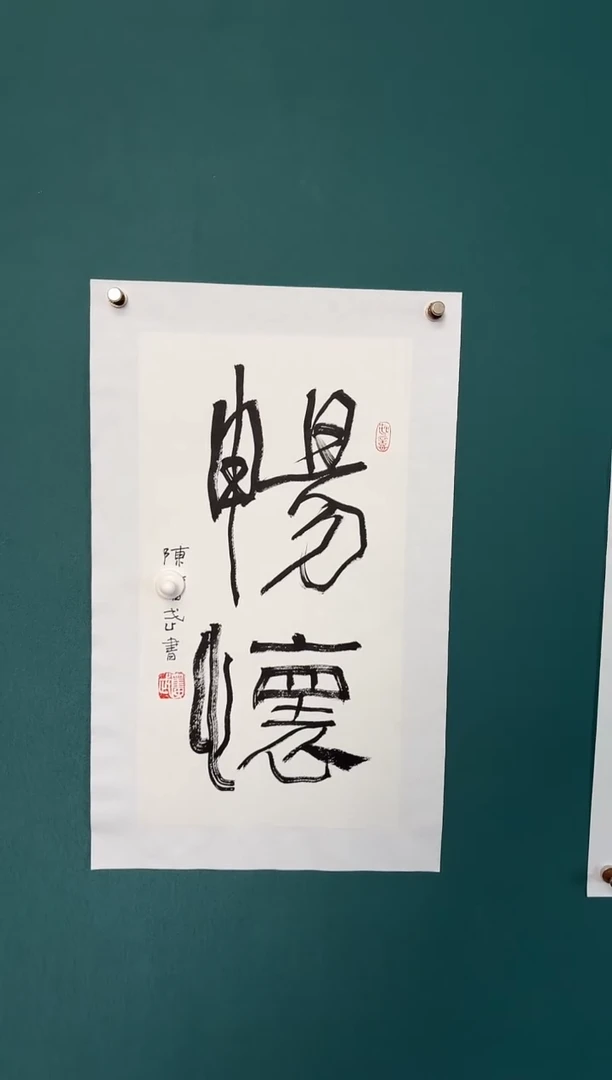 暢懷
陳 岱書